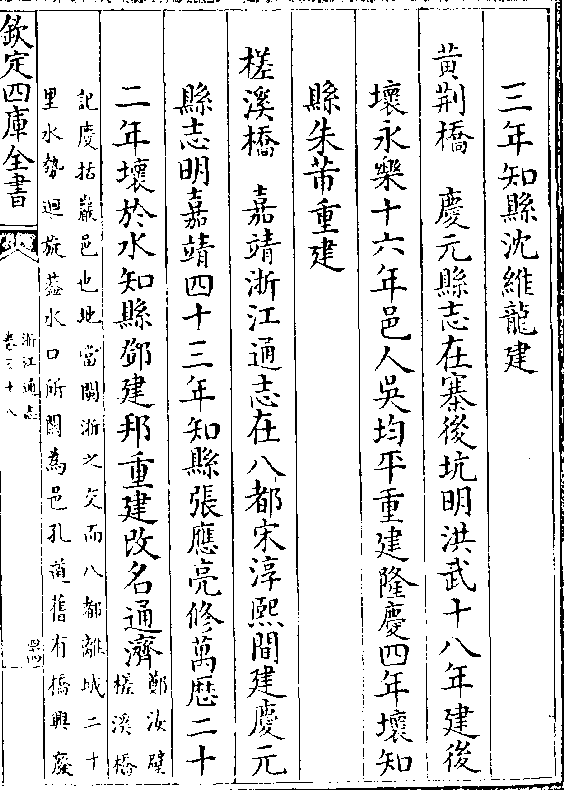 三年知縣沈維龍建
黄荆橋　慶元縣志在寨後坑明洪武十八年建後
壞永樂十六年邑人吳均平重建隆慶四年壞知
縣朱芾重建
槎溪橋　嘉靖浙江通志在八都宋淳熙間建慶元
縣志明嘉靖四十三年知縣張應亮修萬厯二十
二年壞於水知縣鄧建邦重建改名通濟鄭汝璧
槎溪橋
記慶括巖邑也地當閩浙之交而八都離城二十
里水勢迴旋葢水口所關為邑孔道舊有橋興廢
欽定四庫全書
浙江通志
卷三十八